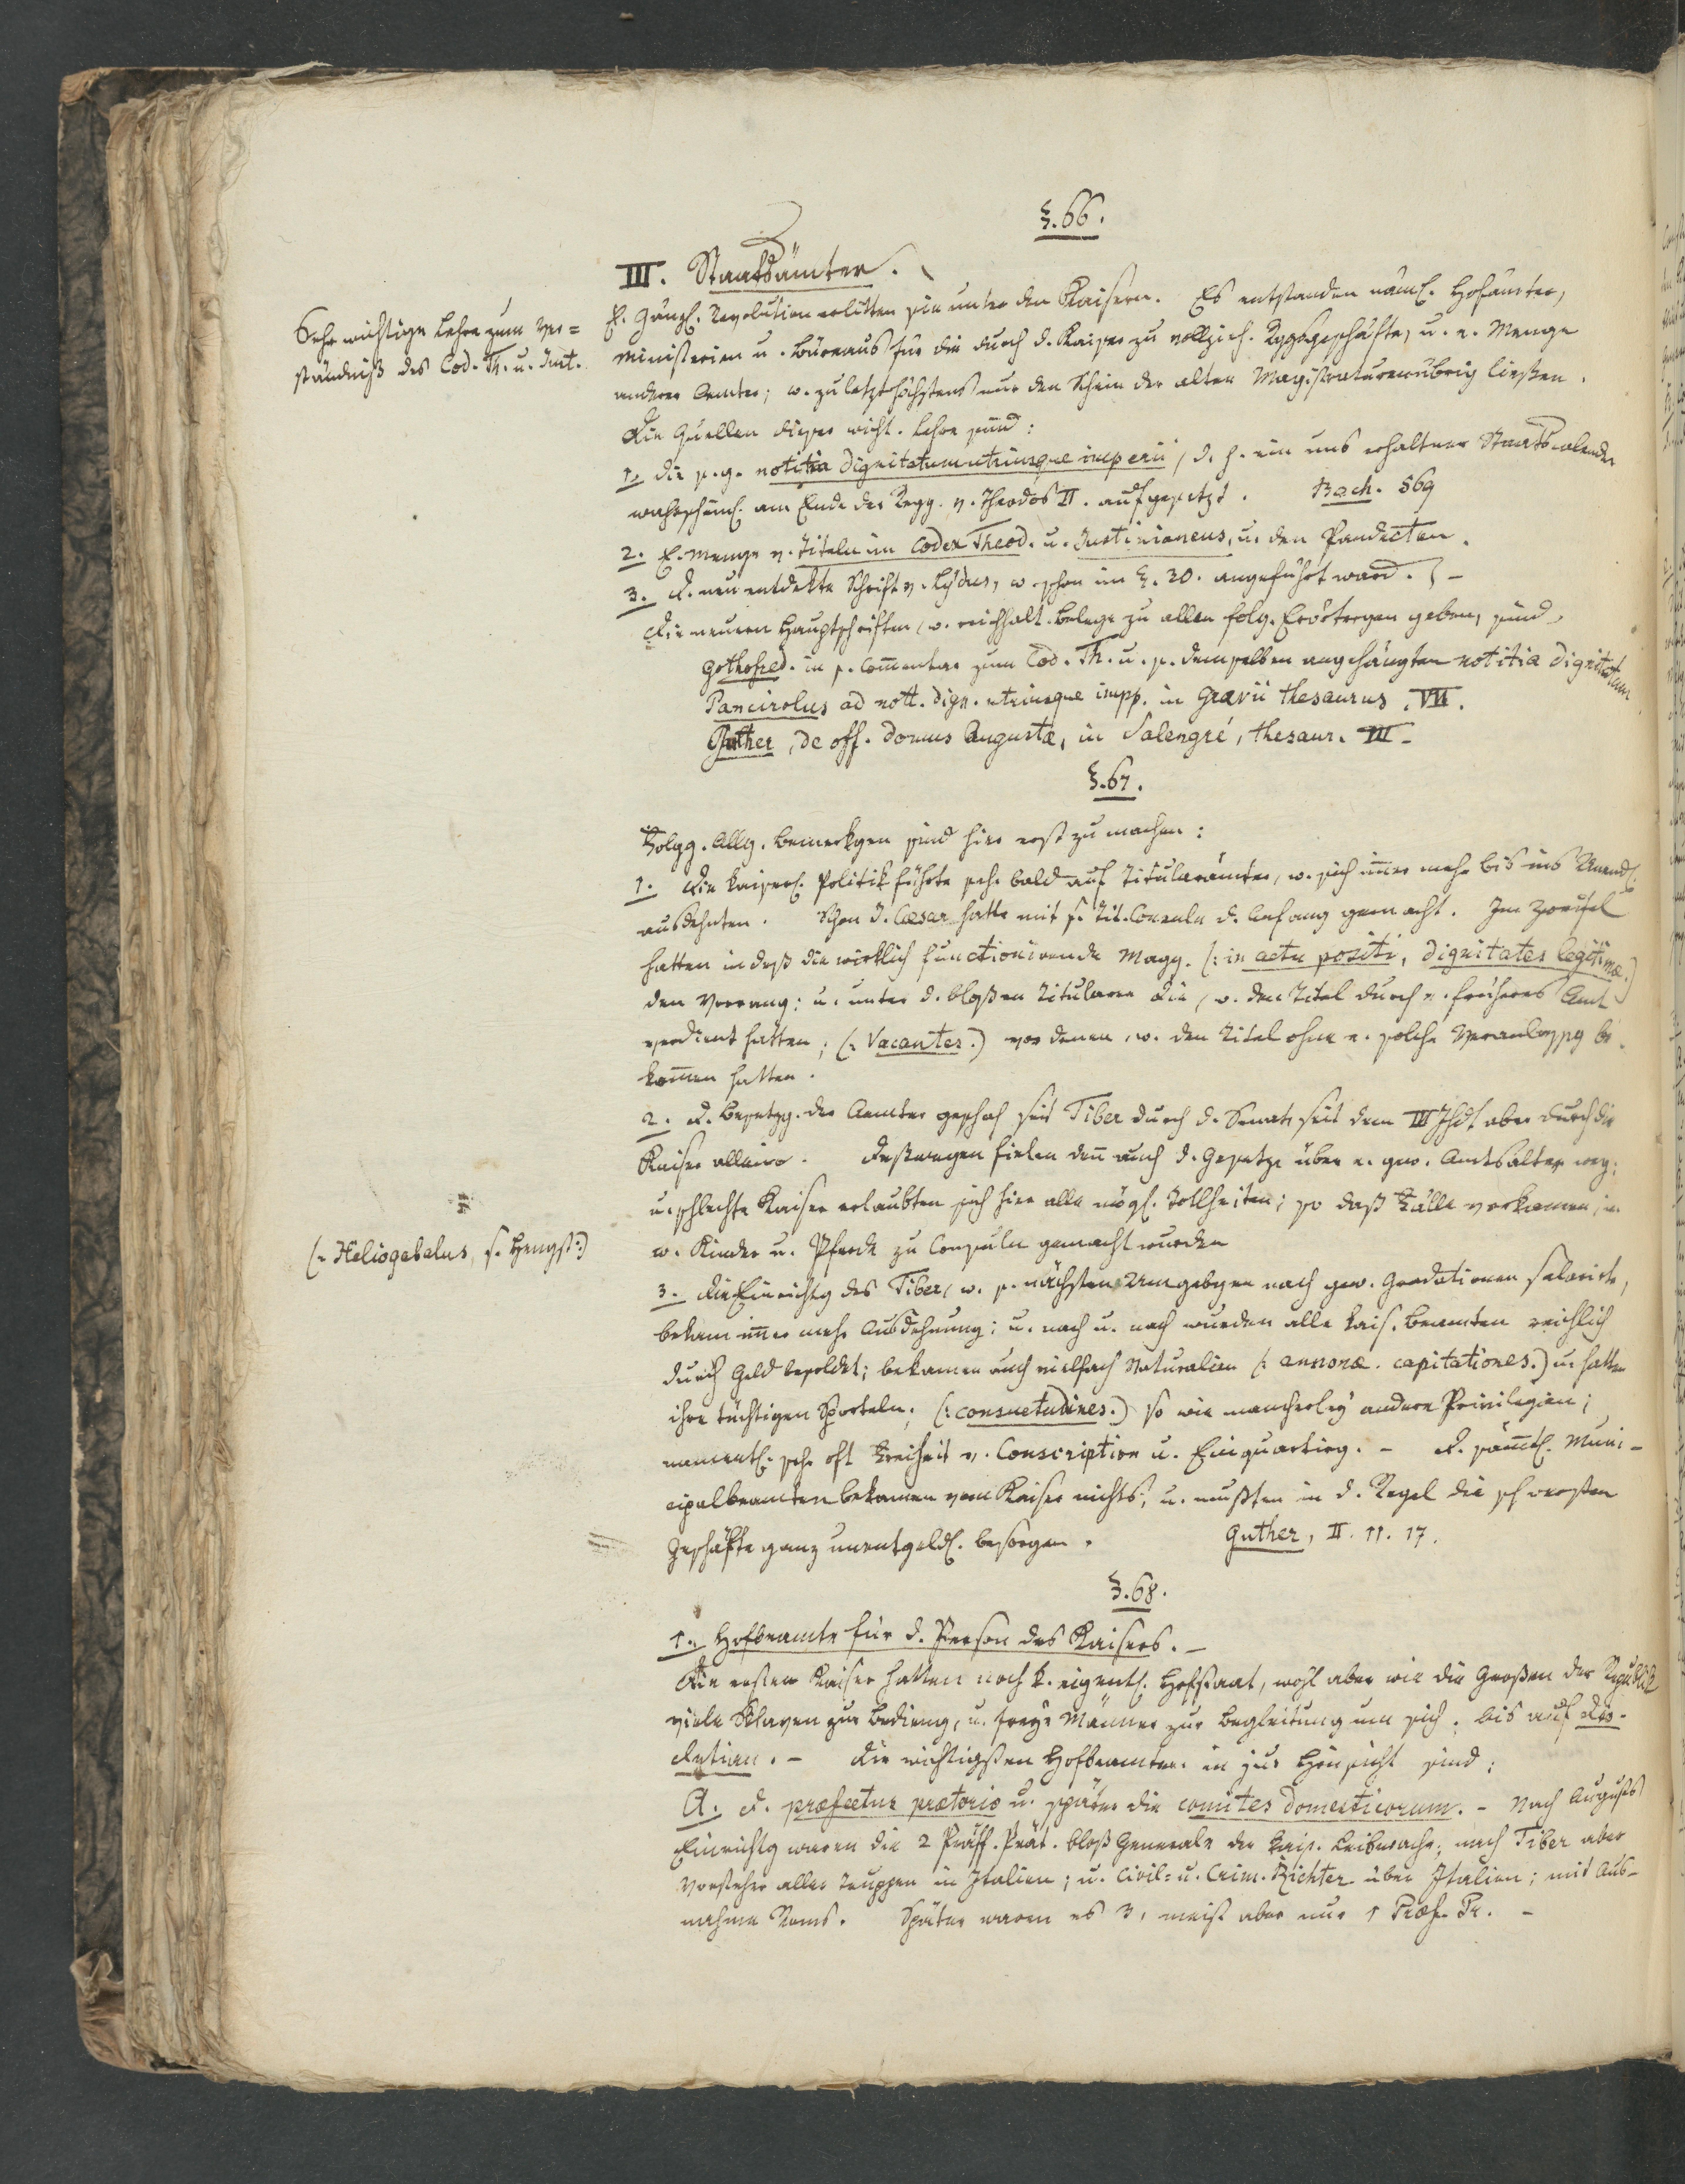 §. 66.
III. Staatsämter.
Sehr wichtige Lehre zum Ver=
ständniß des Cod. Th. u. Just.
E. gänzl. Revolution erlitten sie unter den Kaisern. Es entstanden näml. Hofämter,
Ministerien u. Büreaus für die durch d. Kaiser zu vollzieh. Rggsgeschäfte, u. e. Menge
anderer Aemter; w. zuletzt höchstens nur den Schein der alten Magistraturen übrig ließen.
Die Quellen dieser wicht. Lehre sind:
1. die s. g. notitia dignitatum utriusque imperii, d. h. ein uns erhaltner Staatscalender
wahrscheinl. am Ende der Regg. v. Theodos II. aufgesetzt. Bach. 569
2. E. Menge v. Titeln im Codex Theod. u. Justinianeus, u. den Pandecten.
3. D. neu entdekte Schrift v. Lydus, w. schon im §. 30. angeführt ward. –
Die neuern Hauptschriften, w. reichhalt. Belege zu allen folg. Erörtergen geben, sind,
Gothofred. in s. Comentar zum Cod. Th. u. s. demselben angehängten notitia dignitatum
Pancirolus ad nott. dign. utriusque impp. in Grævii thesaurus. VII.
Guther, de off. domus Augustæ, in Salengré, thesaur. III.
§. 67.
Folgg. Allg. Bemerkgen sind hier erst zu machen:
1. Die kaiserl. Politik führte sehr bald auf Titularämter, w. sich imer mehr bis ins Unendl.
ausdehnten. Schon J. Cæsar hatte mit s. Tit. Consuln d. Anfang gemacht. Im Zweifel
hatten indeß die wirklich functionirende Magg. (: in actu positi, dignitates legitimæ.)
den Vorrang: u. unter d. bloßen Titularen die, w. den Titel durch e. früheres Amt
verdient hatten; (: Vacantes.) vor denen, w. den Titel ohne e. solche Veranlassg be-
komen hatten.
2. D. Besetzg. der Aemter geschah seit Tiber durch d. Senat, seit dem III Jhdt aber durch die
Kaiser allein. Deßwegen fielen den auch d. Gesetze über e. gew. Amtsalter weg;
u. schlechte Kaiser erlaubten sich hier alle mögl. Tollheiten; so daß Fälle vorkamen, in
w. Kinder u. Pferde zu Consuln gemacht wurden
(: Heliogabalus, s. Hengst :)
3. Die Einrichtg des Tiber, w. s. nächsten Umgebgen nach gew. Gradationen salarirte,
bekam imer mehr Ausdehnung; u. nach u. nach wurden alle kais. Beamten reichlich
durch Geld besoldet; bekamen auch vielfach Naturalien (: annonæ. capitationes.) u. hatten
ihre tüchtigen Sporteln; (: consuetudines.) so wie mancherley andere Privilegien;
namentl. sehr oft Freiheit v. Conscription u. Einquartirg. – D. sämtl. Muni-
cipalbeamten bekamen vom Kaiser nichts; u. mußten in d. Regel die schwersten
Geschäfte ganz unentgeldl. besorgen. Guther, II. 11. 17.
§. 68.
1. Hofbeamte für d. Person des Kaisers. –
Die ersten Kaiser hatten noch k. eigentl. Hofstaat, wohl aber wie die Großen der Republik
viele Sklaven zur Bedieng, u. freye Männer zur Begleitung um sich, bis auf Dio-
cletian. – Die wichtigsten Hofbeamten in Hinsicht sind:
A. D. præfectus prætorio u. später die comites domesticorum. – Nach Augusts
Einrichtg waren die 2 Präff. Prät. bloß Generale der kais. Leibwache; nach Tiber aber
Vorsteher aller Truppen in Italien; u. Civil- u. Crim. Richter über Italien; mit Aus-
nahme Roms. Später waren es 3, meist aber nur 1 Præf. Pr. –